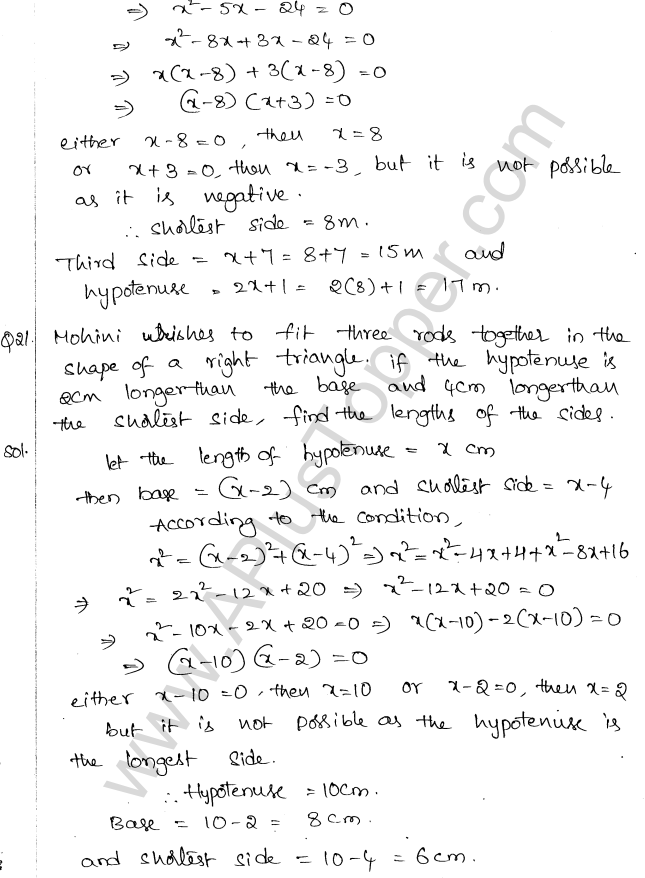 ⇒ x² - 5x - 24 = 0
⇒ x² - 8x + 3x - 24 = 0
⇒ x(x-8) + 3(x-8) = 0
⇒ (x-8) (x+3) = 0
either x-8 = 0, then x = 8
or x+3 = 0, then x = -3, but it is not possible
as it is negative.
∴ shortest side = 8m.
Third side = x+7 = 8+7 = 15m and
hypotenuse = 2x+1 = 2(8)+1 = 17m.
Q21. Mohini wishes to fit three rods together in the
shape of a right triangle. if the hypotenuse is
2cm longer than the base and 4cm longer than
the shortest side, find the lengths of the sides.
Sol. let the length of hypotenuse = x cm
then base = (x-2) cm and shortest side = x-4
According to the condition,
x² = (x-2)² + (x-4)² ⇒ x² = x²-4x+4+x²-8x+16
⇒ x² = 2x²-12x+20 ⇒ x²-12x+20 = 0
⇒ x²-10x-2x+20 = 0 ⇒ x(x-10)-2(x-10) = 0
⇒ (x-10)(x-2) = 0
either x-10 = 0, then x=10 or x-2=0, then x=2
but it is not possible as the hypotenuse is
the longest side.
∴ Hypotenuse = 10cm.
Base = 10-2 = 8cm.
and shortest side = 10-4 = 6cm.
www.APlusTopper.com